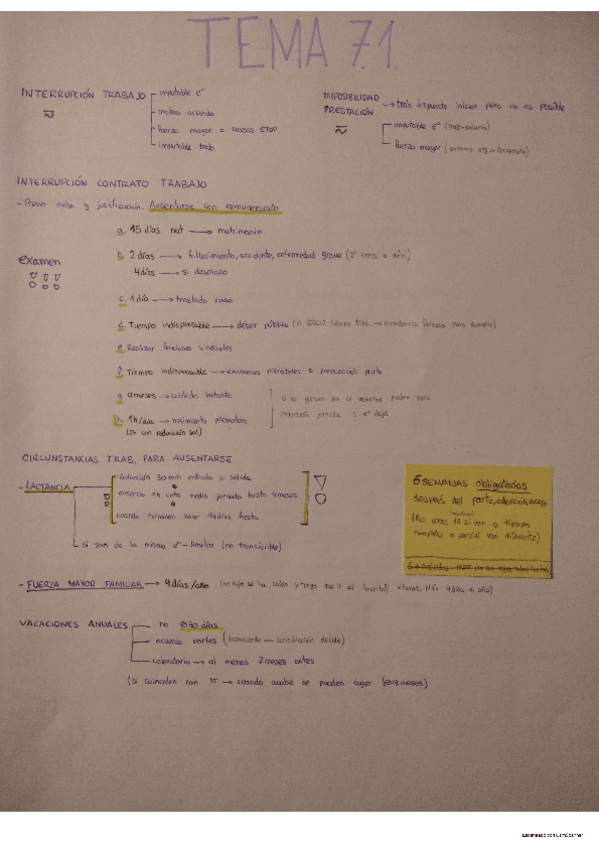 TEMA 7.1.
INTERRUPCIÓN TRABAJO
imputable eª
mutuo acuerdo
fuerza mayor o causas ETOP
imputable trab
IMPOSIBILIDAD PRESTACIÓN → trab dispuesto iniciar pero no es posible
imputable eª (trab=salario)
fuerza mayor (externo org → terremoto)
INTERRUPCIÓN CONTRATO TRABAJO
- Previo aviso y justificación. Ausentarse con remuneración
examen
a. 15 días nat → matrimonio
b. 2 días → fallecimiento, accidente, enfermedad grave (2º cons. o afin.)
4 días → si desplazo
c. 1 día → traslado casa
d. Tiempo indispensable → deber público (si 20% tiempo trab. → excedencia forzosa para cumplir)
e. Realizar funciones sindicales
f. Tiempo indispensable → exámenes prenatales o preparación parto
g. 9 meses → cuidado lactante
h. 1h/día → nacimiento prematuro
(2h con reducción sal)
reducción jornada
CIRCUNSTANCIAS TRAB. PARA AUSENTARSE
- LACTANCIA
reducción 30 min entrada o salida
ausencia 1h cada media jornada hasta 9 meses
cuando terminen tener 14 días fiesta
si son de la misma eª - limitar (no transferible)
6 SEMANAS obligatorias
después del parto, adopción, acog.
(las otras 10 si van a tiempo
completo o parcial van diferente)
- FUERZA MAYOR FAMILIAR → 4 días/año
VACACIONES ANUALES
no @30 días
acuerdo partes (desacuerdo → jurisdicción decide)
calendario → al menos 2 meses antes
(si coinciden con IT → cuando acabe se pueden coger (@18 meses)